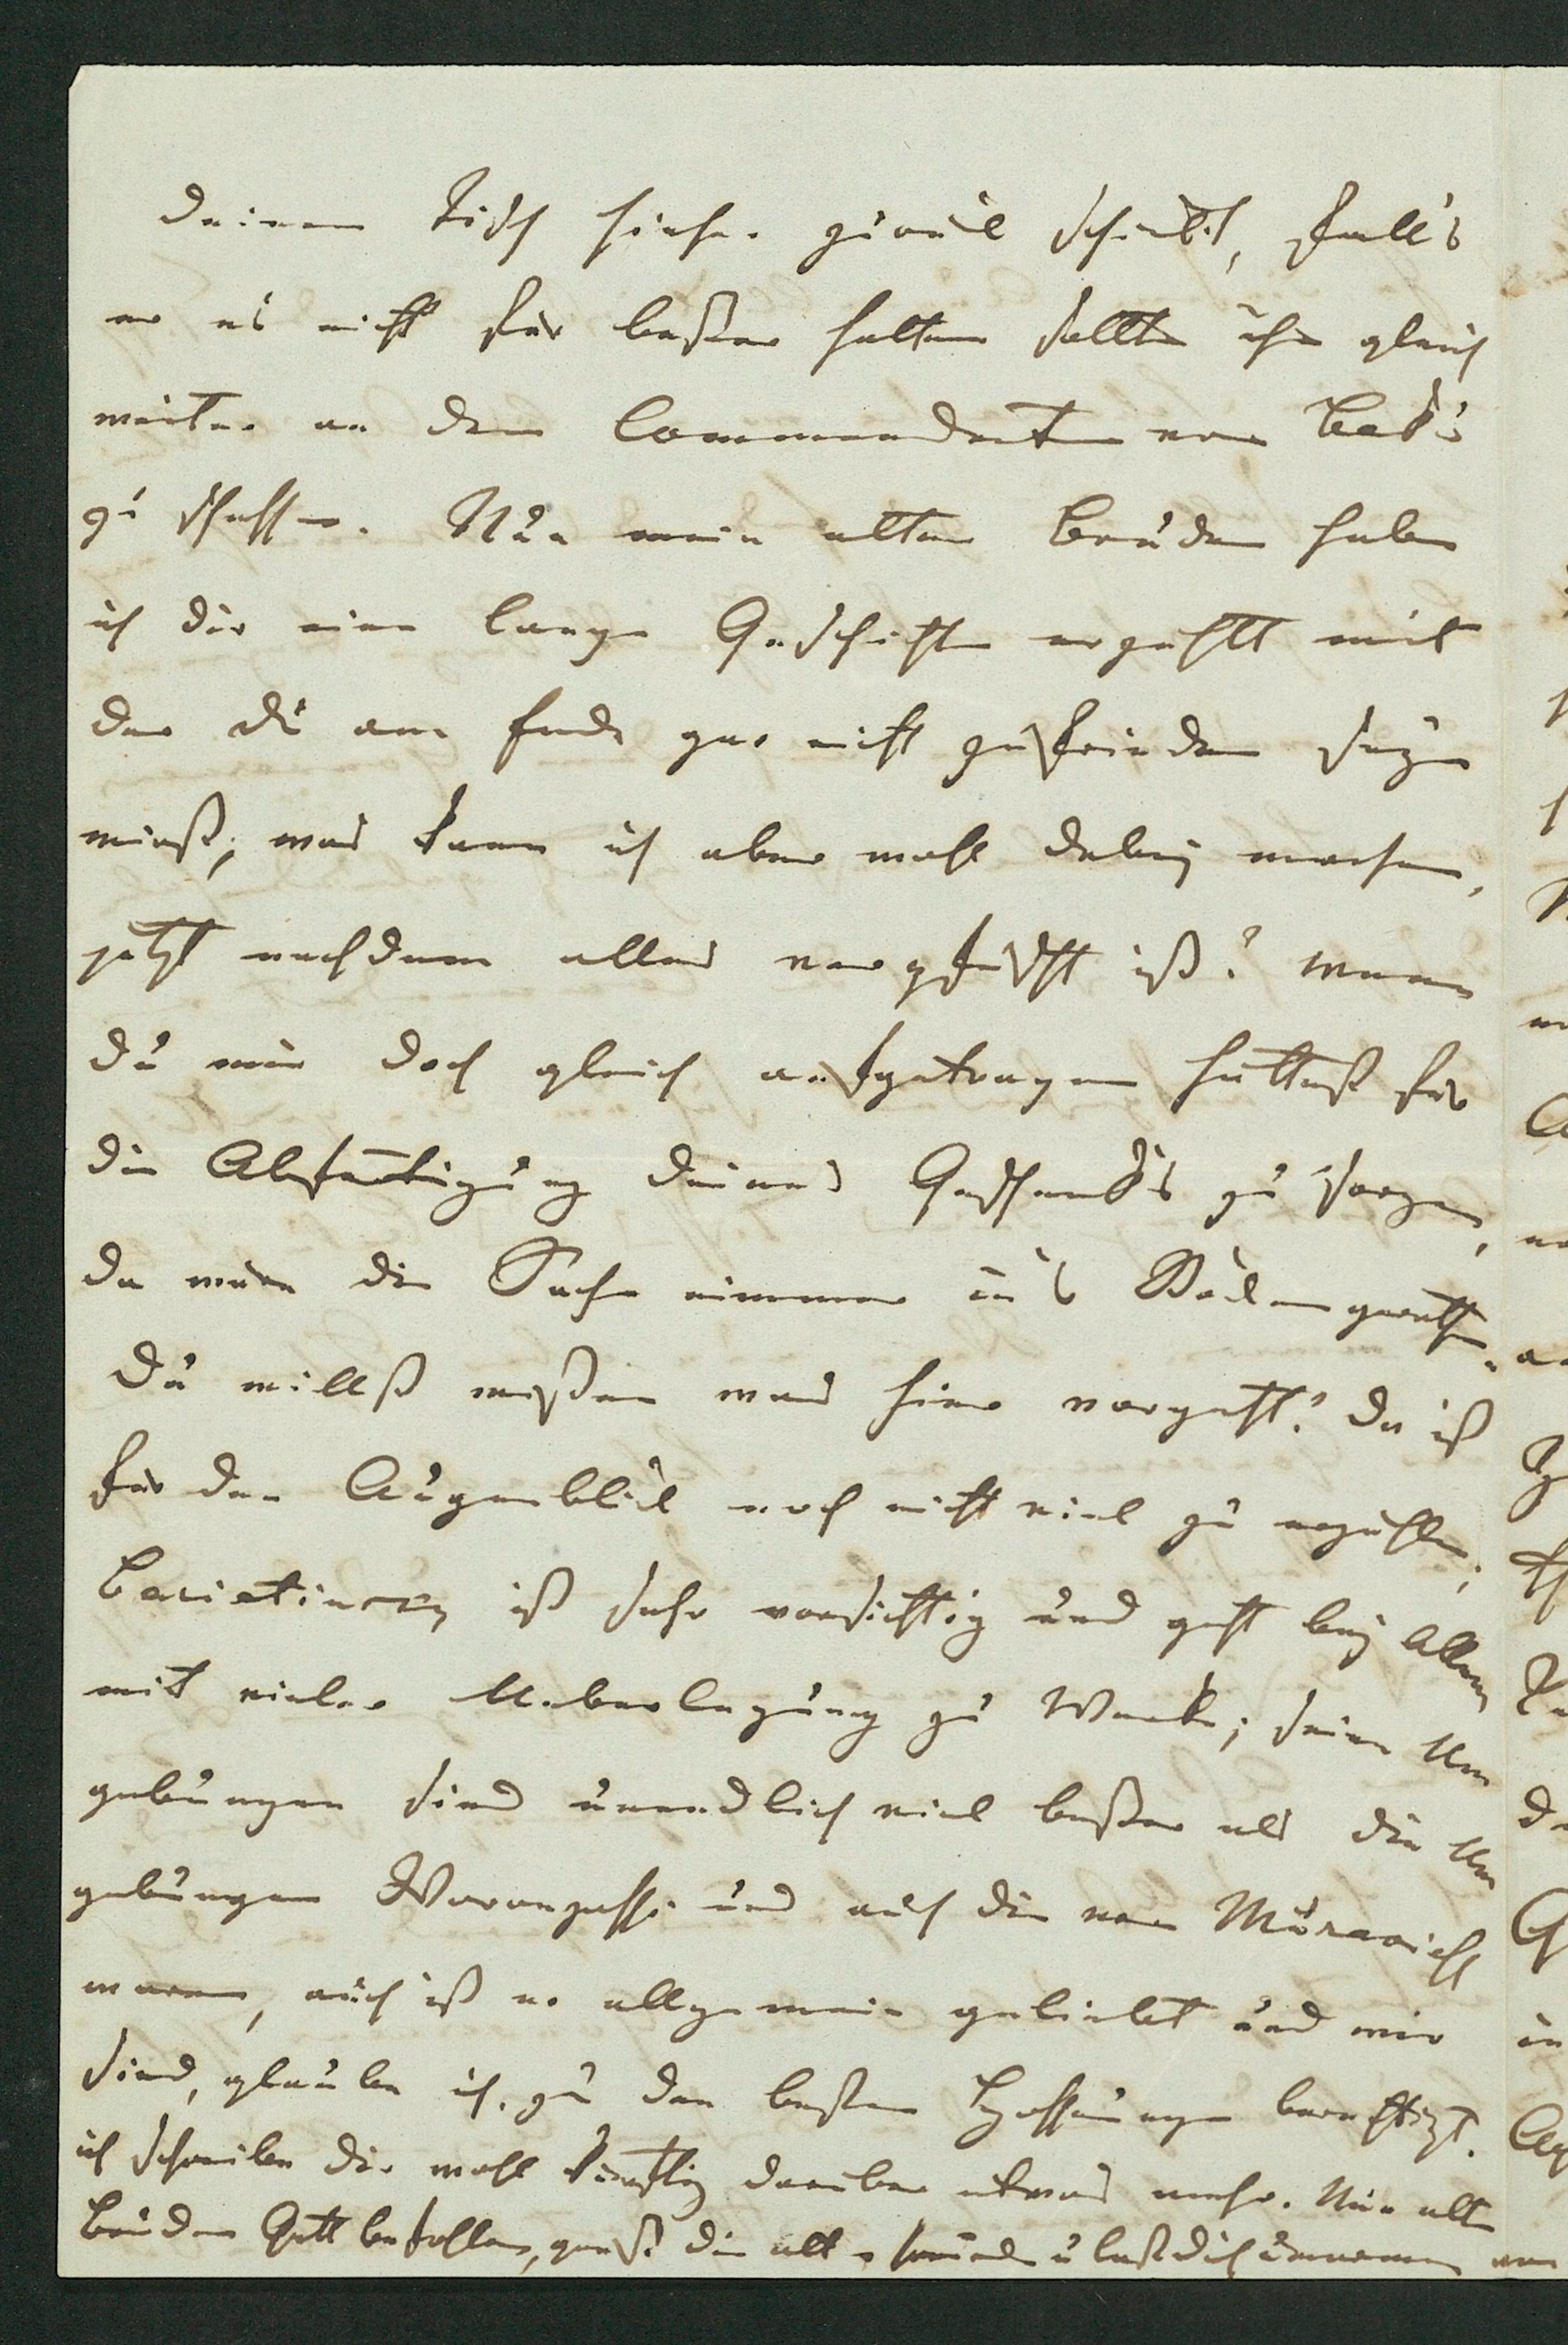 Deinen Tisch hieher zurück schickt, fall's
er es nicht für besser halten sollte ihn gleich
weiter an den Commendanten von Baku
zu schaffen. Nun mein alter Bruder habe
ich dir eine lange Geschichte erzählt mit
der du am Ende gar nicht zufrieden seyn
wirst; was kann ich aber wohl dabey machen,
jetzt nachdem alles verpfuscht ist? wenn
du mir doch gleich aufgetragen hättest für
die Abfertigung deines Geschenk's zu sorgen,
da wäre die Sache nimmer in's Boden gerathen.
Du willst wissen was hier vorgeht? da ist
für den Augenblick noch nicht viel zu erzählen;
Bariatinsky ist sehr vorsichtig und geht bey Allem
mit vieler Ueberlegung zu Werke; seine Um
gebungen sind unendlich viel besser als die Um
gebungen Woronzoffs und auch die von Murawieff
waren, auch ist er allgemein geliebt und wir
sind, glaube ich, zu den besten Hoffnungen berechtigt.
ich schreibe dir wohl künftig darüber etwas mehr. Nun alter
Bruder Gott befohlen, grüß die alten Freunde u laß dich umarmen von